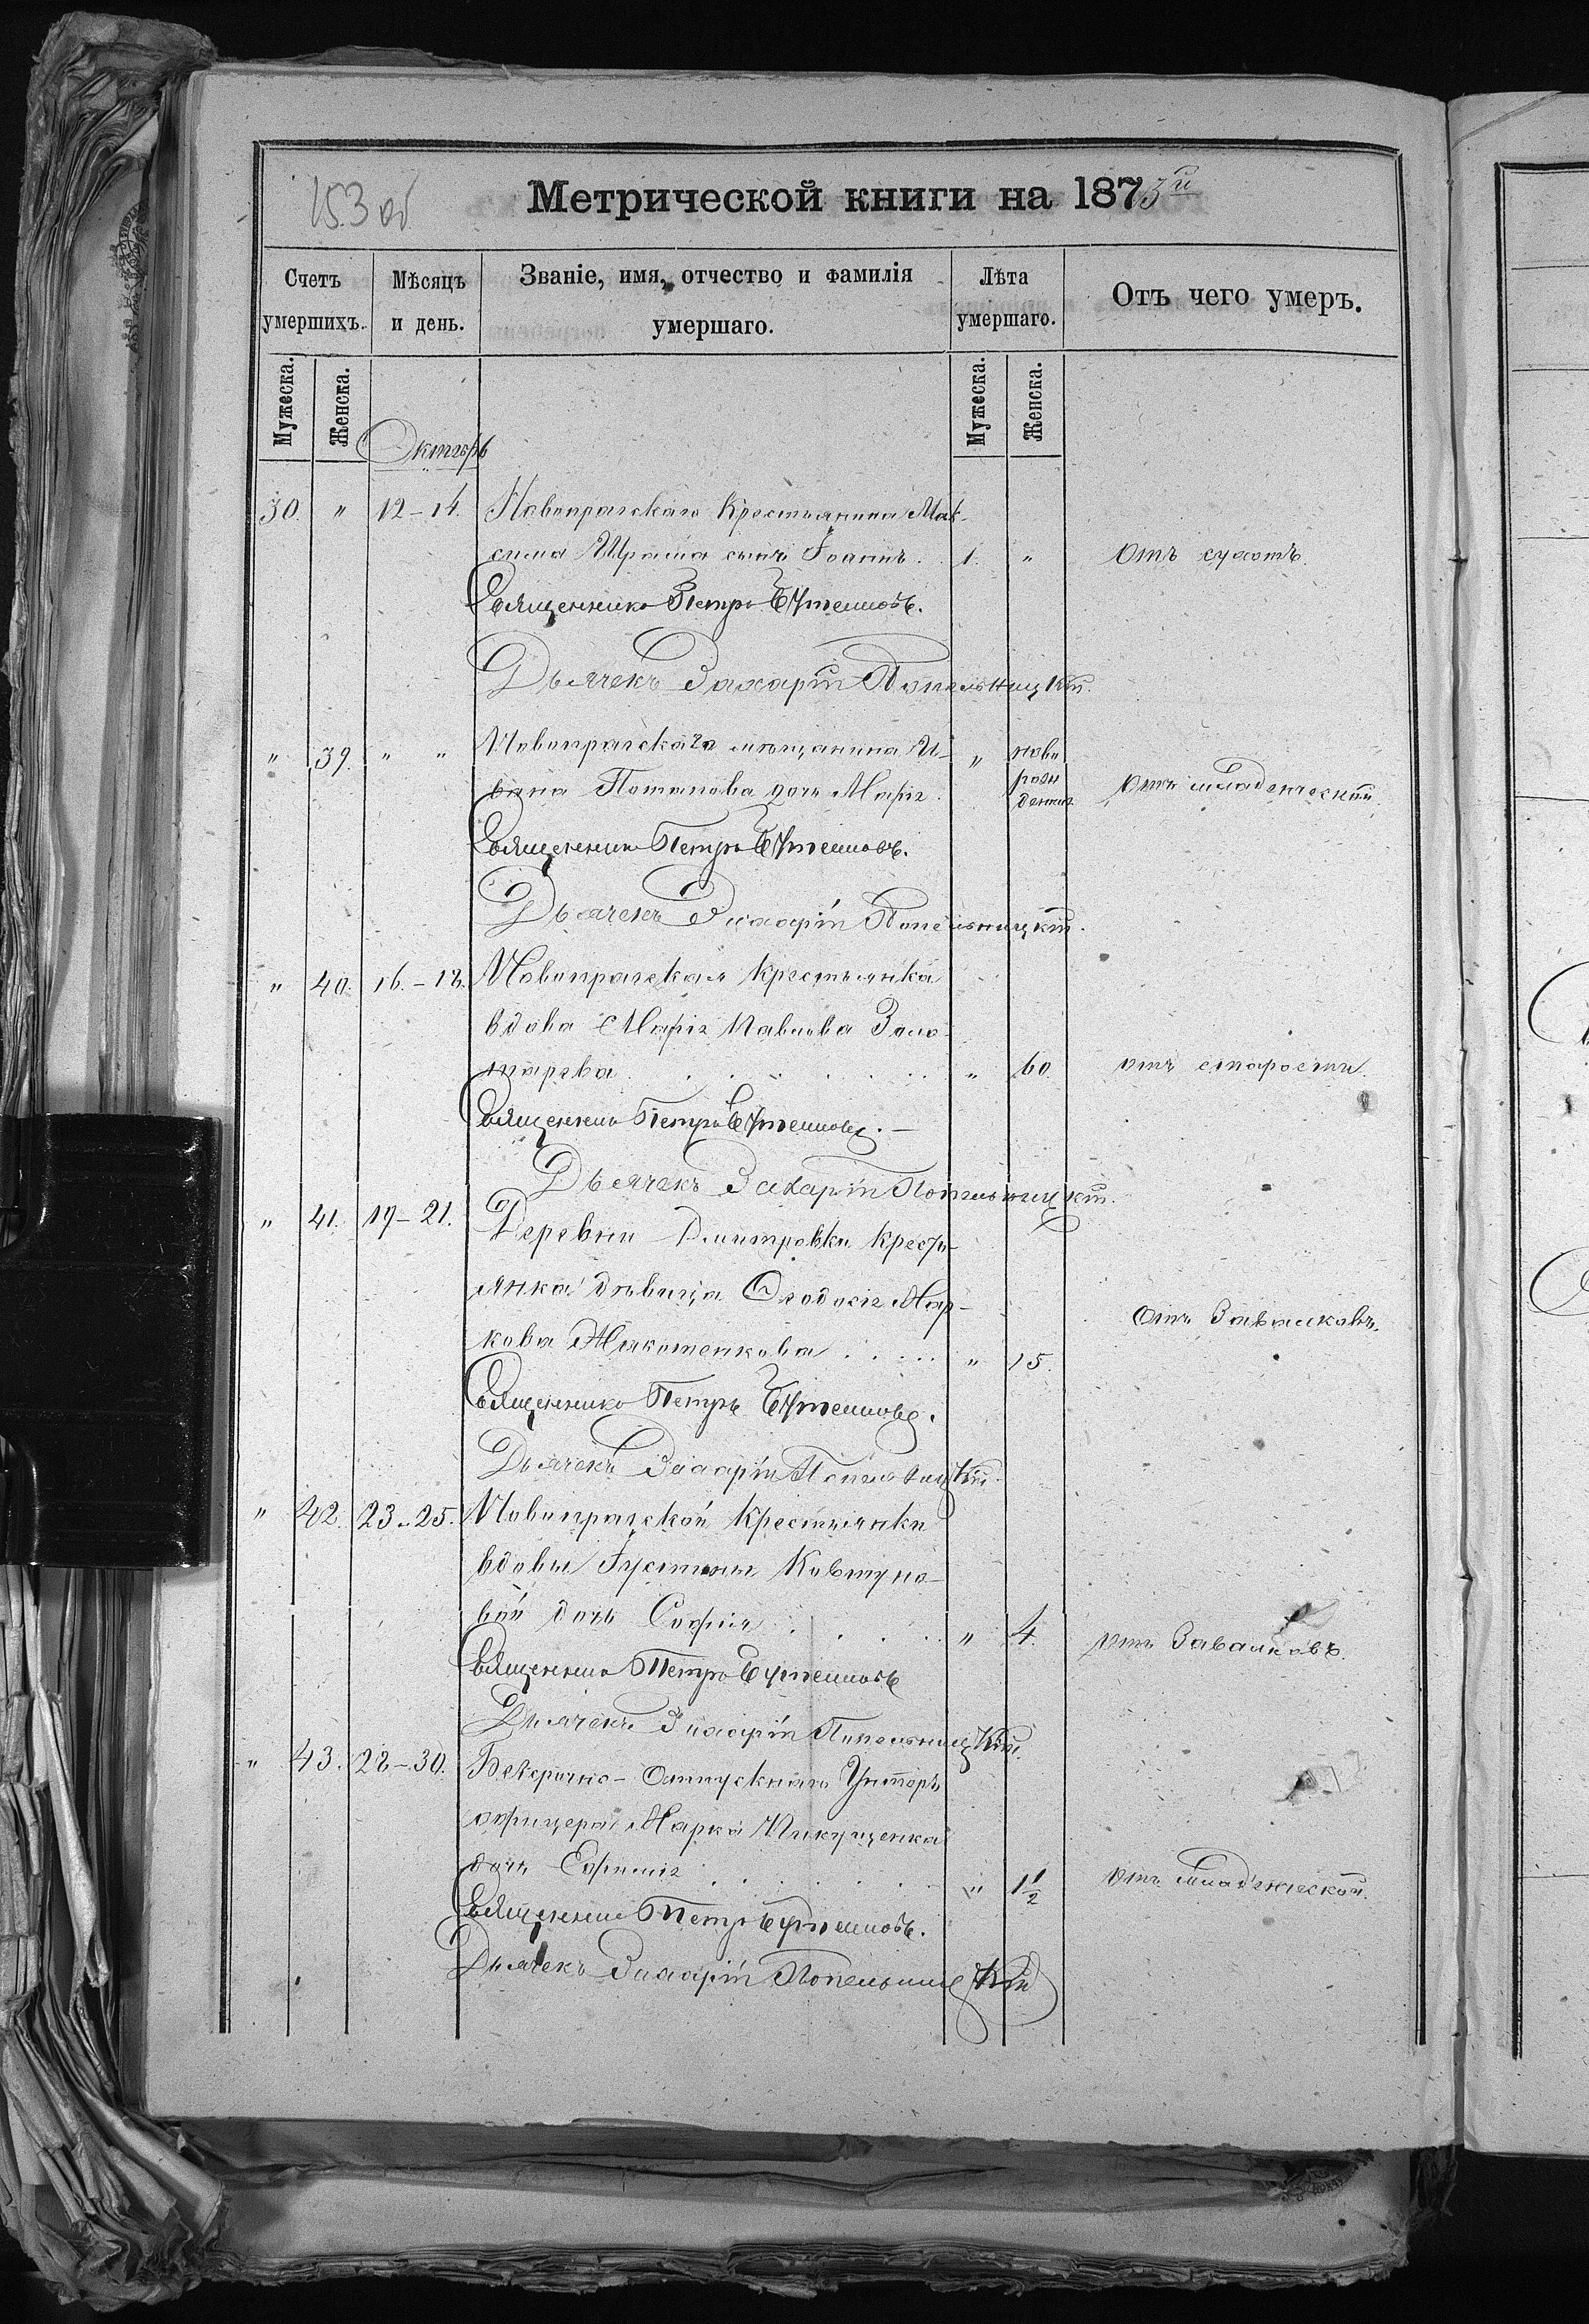 153 об
Метрической книги на 1873й
Счетъ умершихъ.
Мѣсяцъ и день.
Званіе, имя, отчество и фамилія умершаго.
Лѣта умершаго.
Отъ чего умеръ.
Мужеска.
Женска.
Мужеска.
Женска.
Октябрь
30. " 12-14. Новопрагскаго Крестьянина Мак-
сима сынъ Іоаннъ. 1. " Отъ сухотъ.
Священникъ Петръ
Дьячекъ Захарій Попельницкій.
" 39. " " Новопрагскаго мѣщанина И- " ново
вана Потапова дочь Марія. рож
денная Отъ младенческой.
Священникъ Петръ
Дьячекъ Захарій Попельницкій.
" 40. 16.-18. Новопрагская Крестьянка
вдова Марія Павлова Золо-
тарева " 60 отъ старости.
Священникъ Петръ
Дьячекъ Захарій Попельницкій.
" 41. 19-21. Деревни Дмитровки Кресть-
янка дѣвица Ѳеодосія Мар-
кова " 15. Отъ Завалковъ.
Священникъ Петръ
Дьячекъ Захарій Попельницкій.
" 42. 23-25. Новопрагской Крестьянки
вдовы Іустины Ковтуно-
вой дочь Софія " 4. отъ Завалковъ.
Священникъ Петръ
Дьячекъ Захарій Попельницкій.
" 43. 28-30. Безсрочно-Отпускнаго Унтеръ
офицера Марка
дочь Евфимія " 1 1/2 Отъ младенческой.
Священникъ Петръ
Дьячекъ Захарій Попельницкій